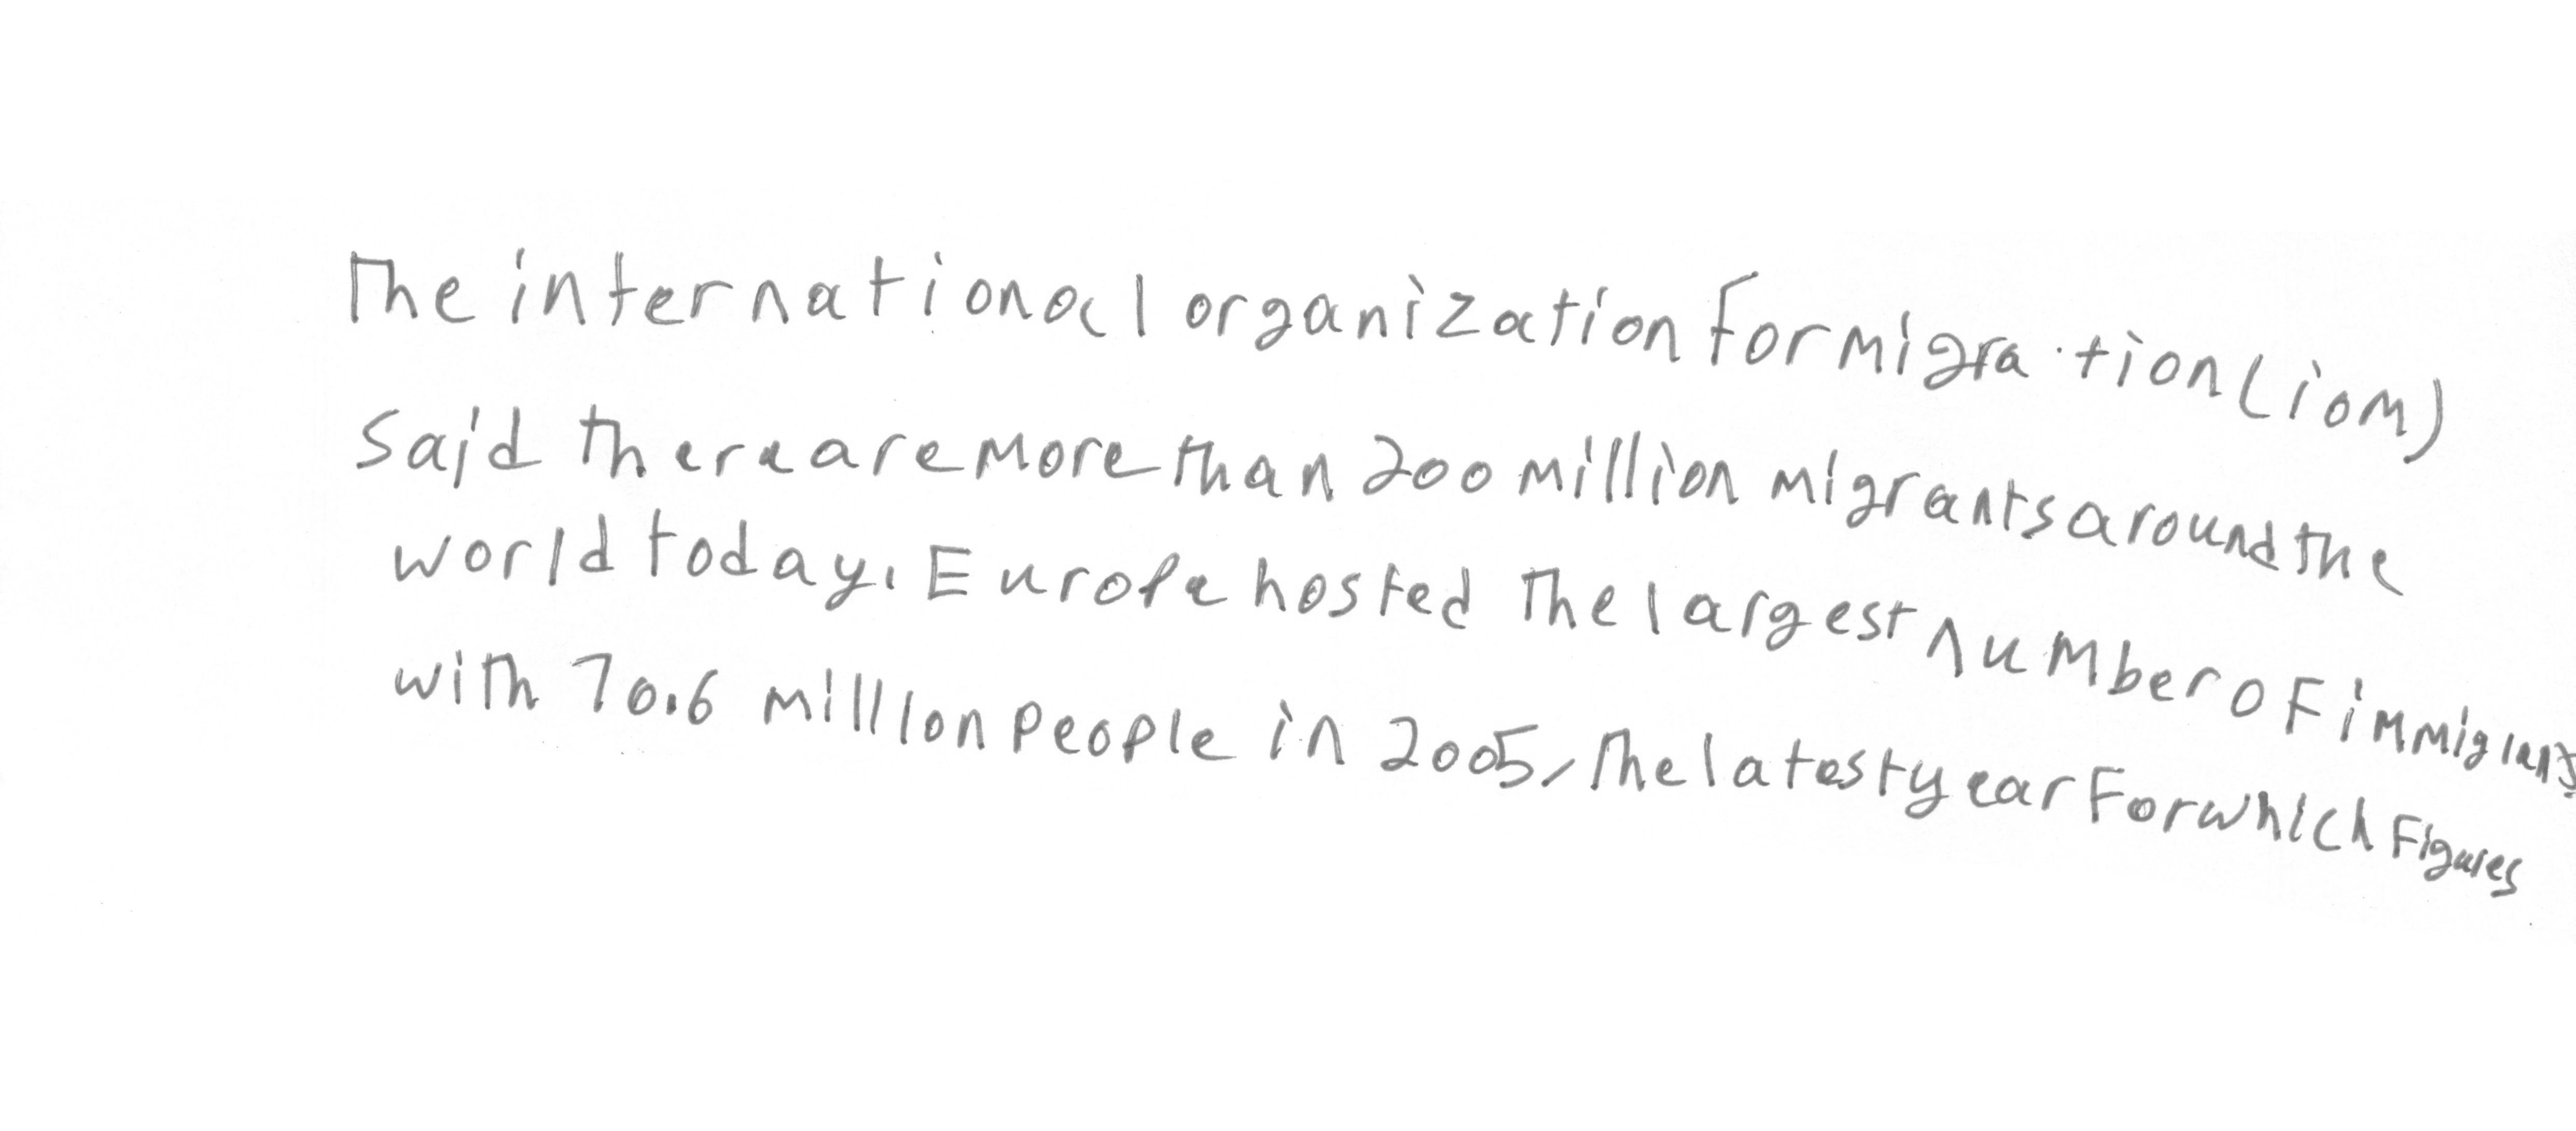 The international organization for migration (iom)
said there are more than 200 million migrants around the
world today. Europe hosted the largest number of immigrants
with 70.6 million people in 2005, the latest year for which figures